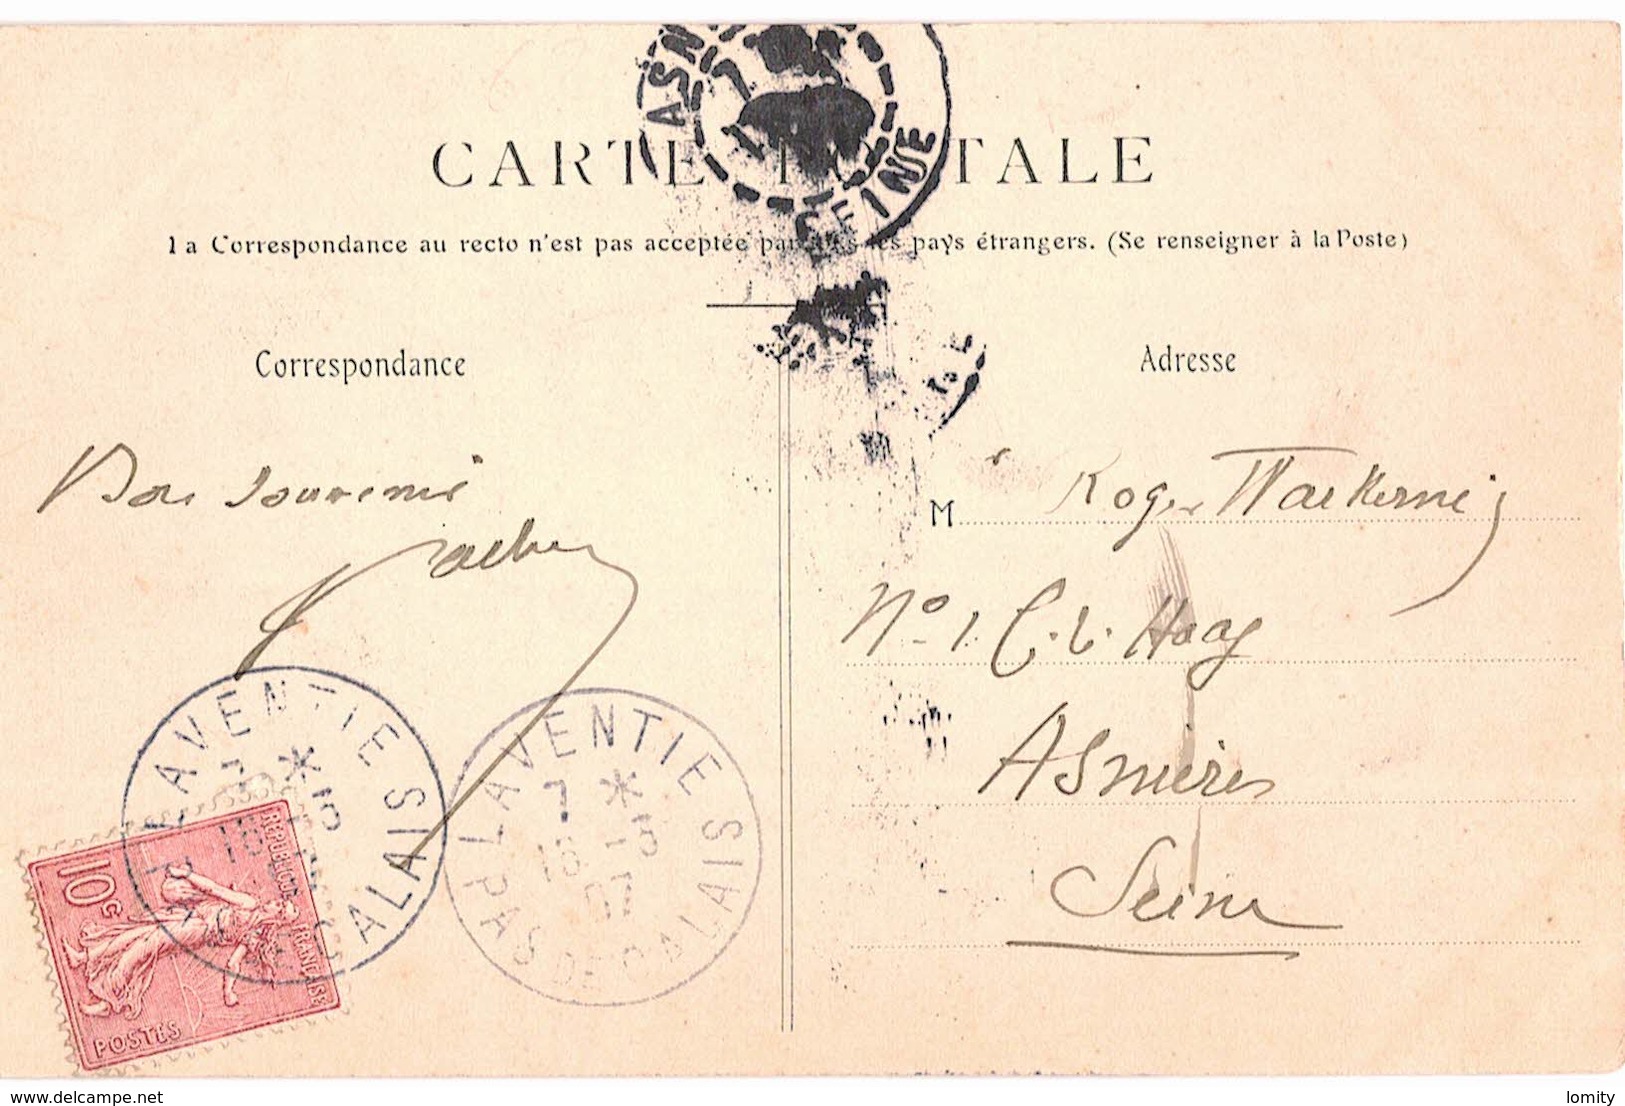 CARTE POSTALE
La Correspondance au recto n'est pas acceptée par tous les pays étrangers. (Se renseigner à la Poste)
Correspondance
Adresse
Bon Souvenir
M Roger
N° 1. C. L. Haag
Asnières
Seine
ASN
SEINE
LAVENTIE
7 * 5
15
PAS DE CALAIS
LAVENTIE
7 * 5
15
07
PAS DE CALAIS
10c
REPUBLIQUE FRANÇAISE
POSTES
www.delcampe.net
lomity